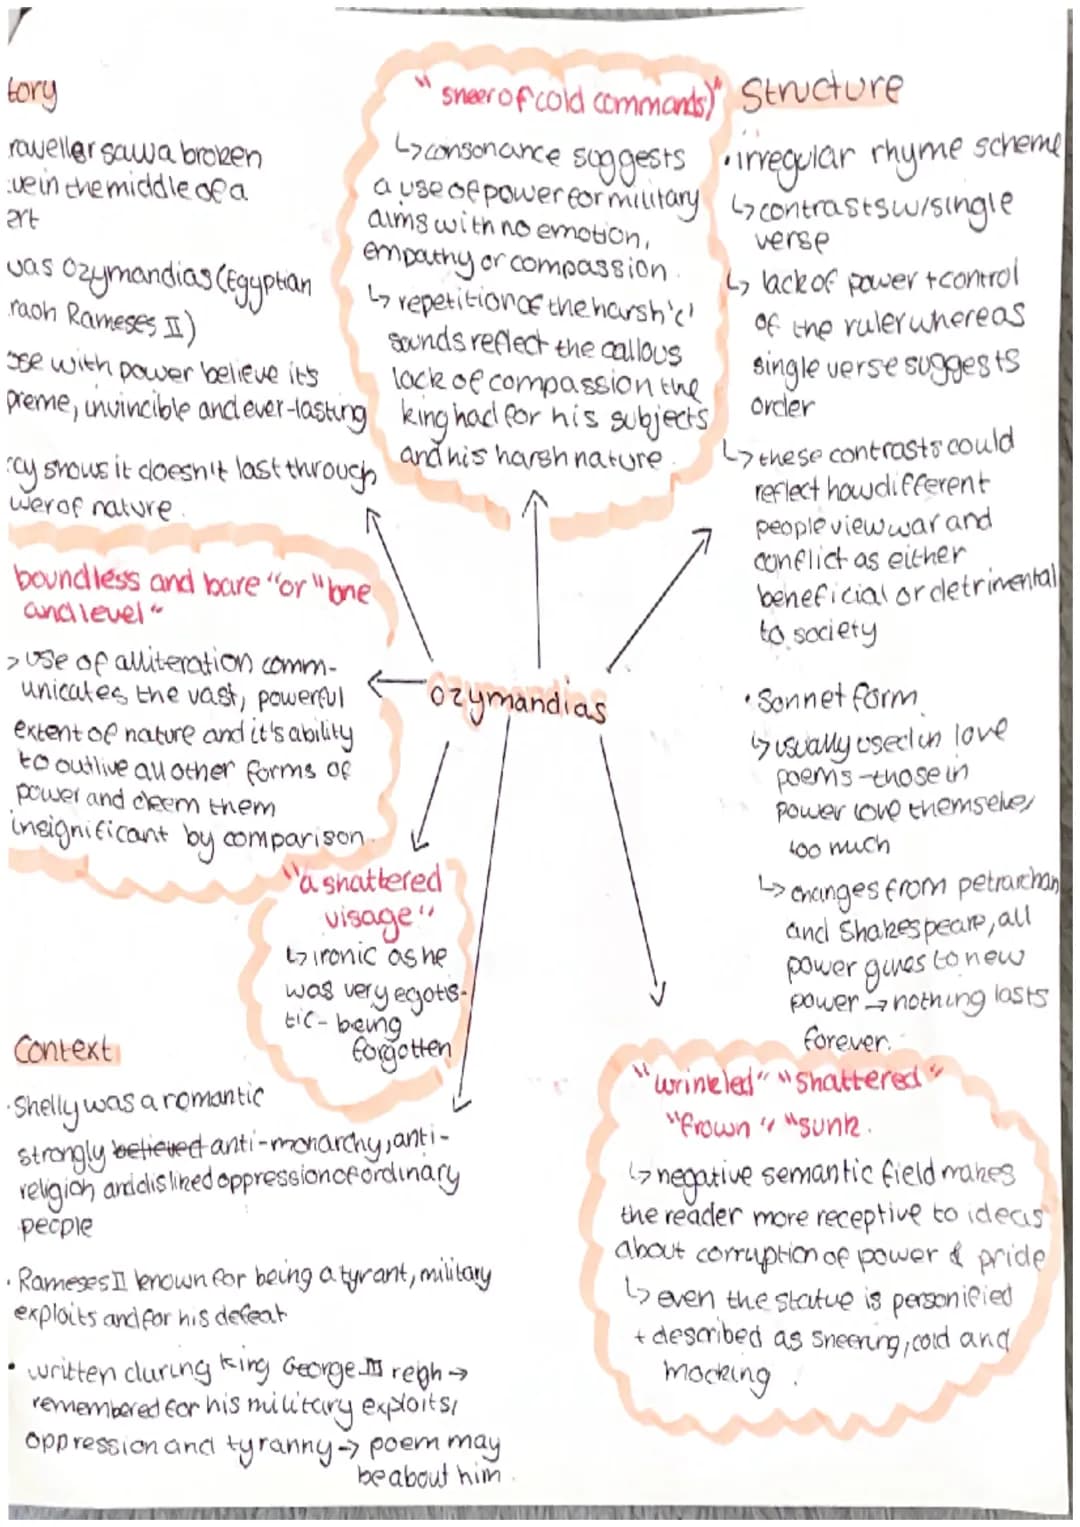 tory
raveller saw a broken
ue in the middle of a
ert
was Ozymandias (Egyptian
raoh Rameses II)
ose with power believe it's
preme, invincible and ever-lasting
cy shows it doesn't last through
wer of nature.
"sneer of cold commands)"
↳ consonance suggests
a use of power for military
aims with no emotion,
empathy or compassion.
↳ repetition of the harsh 'c'
sounds reflect the callous
lack of compassion the
king had for his subjects
and his harsh nature.
Structure
• irregular rhyme scheme
↳ contrasts w/ single
verse
↳ lack of power + control
of the ruler whereas
single verse suggests
order
↳ these contrasts could
reflect how different
people view war and
conflict as either
beneficial or detrimental
to society
• Sonnet form
↳ usually used in love
poems - those in
power love themselves
too much
↳ changes from petrarchan
and Shakespeare, all
power gives to new
power → nothing lasts
forever.
boundless and bare" or "lone
and level"
> use of alliteration comm-
unicates the vast, powerful
extent of nature and it's ability
to outlive all other forms of
power and deem them
insignificant by comparison.
Ozymandias
"a shattered
visage"
↳ ironic as he
was very egotis-
tic - being
forgotten
Context
• Shelly was a romantic
strongly believed anti-monarchy, anti-
religion and disliked oppression of ordinary
people
• Rameses II known for being a tyrant, military
exploits and for his defeat
• written during King George III reign →
remembered for his military exploits,
oppression and tyranny → poem may
be about him.
"wrinkled" "shattered"
"frown" "sunk.
↳ negative semantic field makes
the reader more receptive to ideas
about corruption of power & pride
↳ even the statue is personified
+ described as sneering, cold and
mocking.